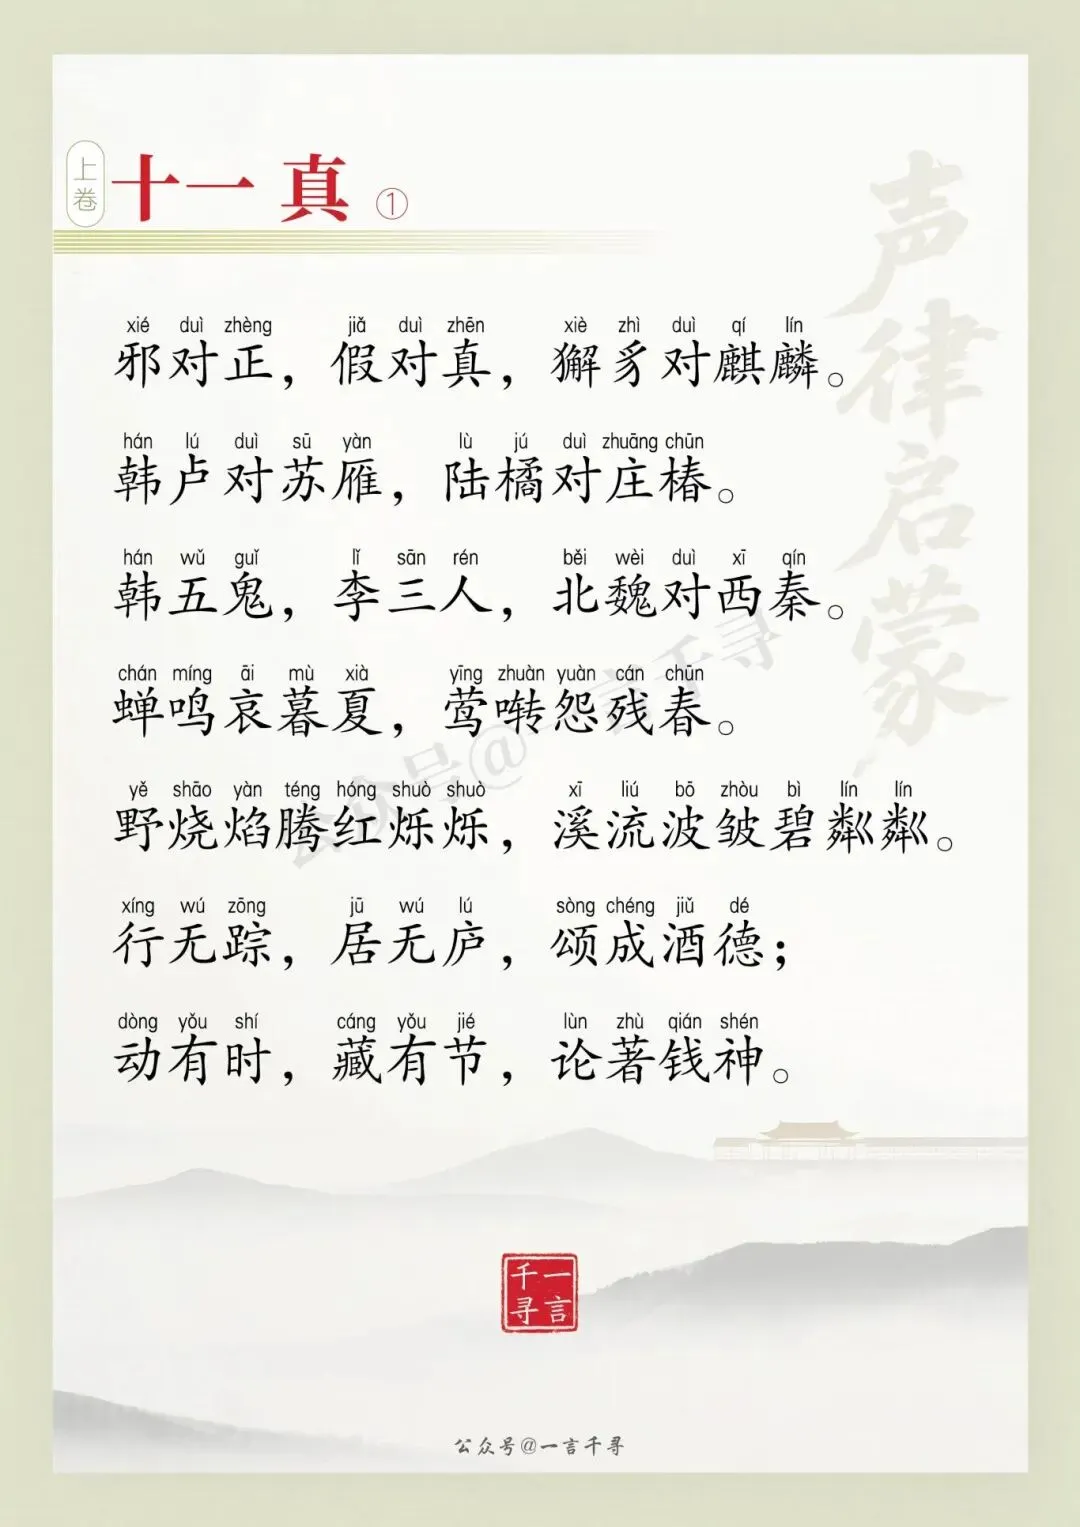 上卷
十一 真 ①
声律启蒙
xié duì zhèng jiǎ duì zhēn xiè zhì duì qí lín
邪对正，假对真，獬豸对麒麟。
hán lú duì sū yàn lù jú duì zhuāng chūn
韩卢对苏雁，陆橘对庄椿。
hán wǔ guǐ lǐ sān rén běi wèi duì xī qín
韩五鬼，李三人，北魏对西秦。
chán míng āi mù xià yīng zhuàn yuàn cán chūn
蝉鸣哀暮夏，莺啭怨残春。
yě shāo yàn téng hóng shuò shuò xī liú bō zhòu bì lín lín
野烧焰腾红烁烁，溪流波皱碧粼粼。
xíng wú zōng jū wú lú sòng chéng jiǔ dé
行无踪，居无庐，颂成酒德；
dòng yǒu shí cáng yǒu jié lùn zhù qián shén
动有时，藏有节，论著钱神。
公众号@一言千寻
一言千寻
公众号@一言千寻